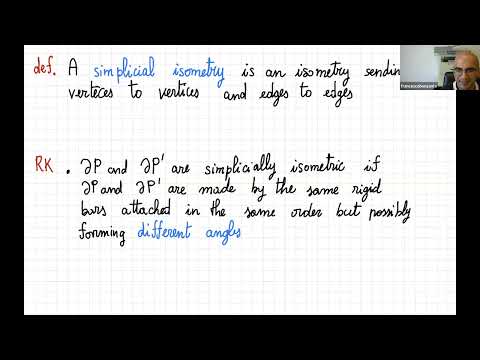 def. A simplicial isometry is an isometry sendin
verteces to vertices and edges to edges
RK . ∂P and ∂P' are simplicially isometric if
∂P and ∂P' are made by the same rigid
bars attached in the same order but possibly
forming different angles